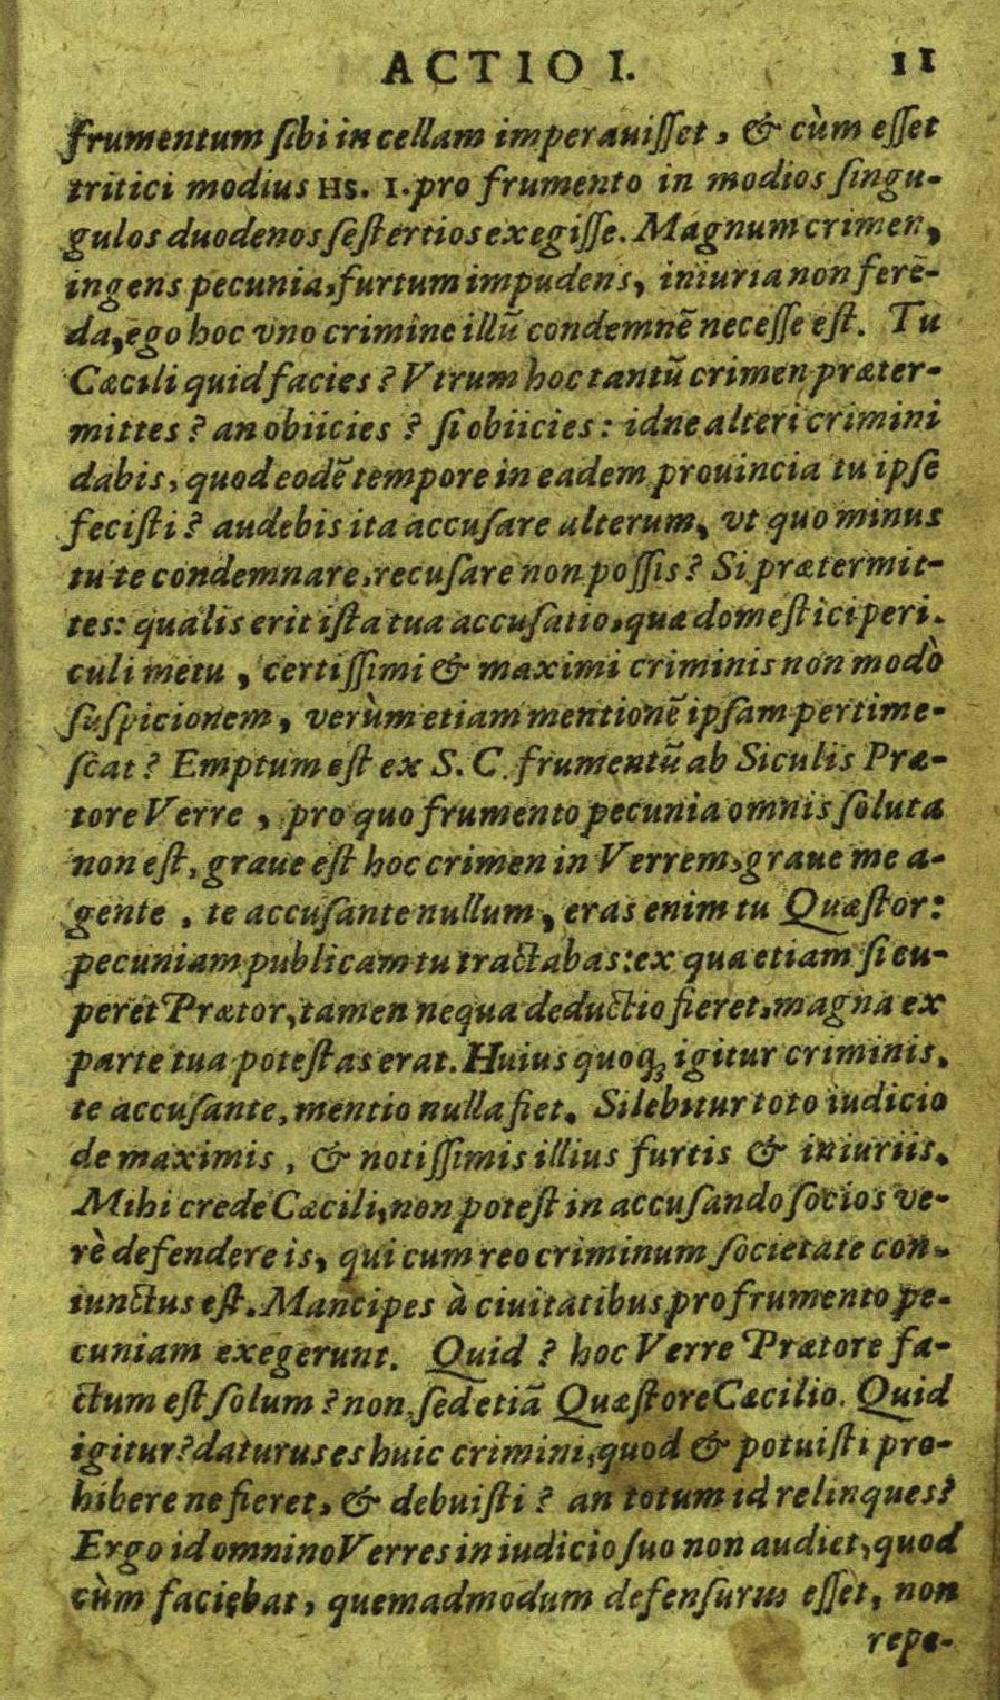 ACTIO I. 11
frumentum ſibi in cellam imperauiſſet, & cùm eſſet
tritici modius HS. I. pro frumento in modios ſingu-
gulos duodenos ſeſtertios exegiſſe. Magnum crimen,
ingens pecunia, furtum impudens, iniuria non ferē-
da, ego hoc vno crimine illū condemnē neceſſe eſt. Tu
Cæcili quid facies? Vtrum hoc tantū crimen præter-
mittes? an obiicies? ſi obiicies: idne alteri crimini
dabis, quod eodē tempore in eadem prouincia tu ipſe
feciſti? audebis ita accuſare alterum, vt quo minus
tu te condemnare, recuſare non poſſis? Si prætermit-
tes: qualis erit iſta tua accuſatio, quæ domeſtici peri-
culi metu, certiſſimi & maximi criminis non modò
ſuſpicionem, verùm etiam mentionē ipſam pertime-
ſcat? Emptum eſt ex S. C. frumentū ab Siculis Præ-
tore Verre, pro quo frumento pecunia omnis ſoluta
non eſt, graue eſt hoc crimen in Verrem, graue me a-
gente, te accuſante nullum, eras enim tu Quæſtor:
pecuniam publicam tu tractabas: ex qua etiam ſi eu-
peret Prætor, tamen ne qua deductio fieret, magna ex
parte tua poteſtas erat. Huius quoq; igitur criminis,
te accuſante, mentio nulla fiet. Silebitur toto iudicio
de maximis, & notiſſimis illius furtis & iniuriis.
Mihi crede Cæcili, non poteſt in accuſando ſocios ve-
rè defendere is, qui cum reo criminum ſocietate con-
iunctus eſt. Mancipes à ciuitatibus pro frumento pe-
cuniam exegerunt. Quid? hoc Verre Prætore fa-
ctum eſt ſolum? non, ſed etiā Quæſtore Cæcilio. Quid
igitur? daturus es huic crimini, quod & potuiſti pro-
hibere ne fieret, & debuiſti? an totum id relinques?
Ergo id omnino Verres in iudicio ſuo non audiet, quod
cùm faciebat, quemadmodum defenſurus eſſet, non
repe-